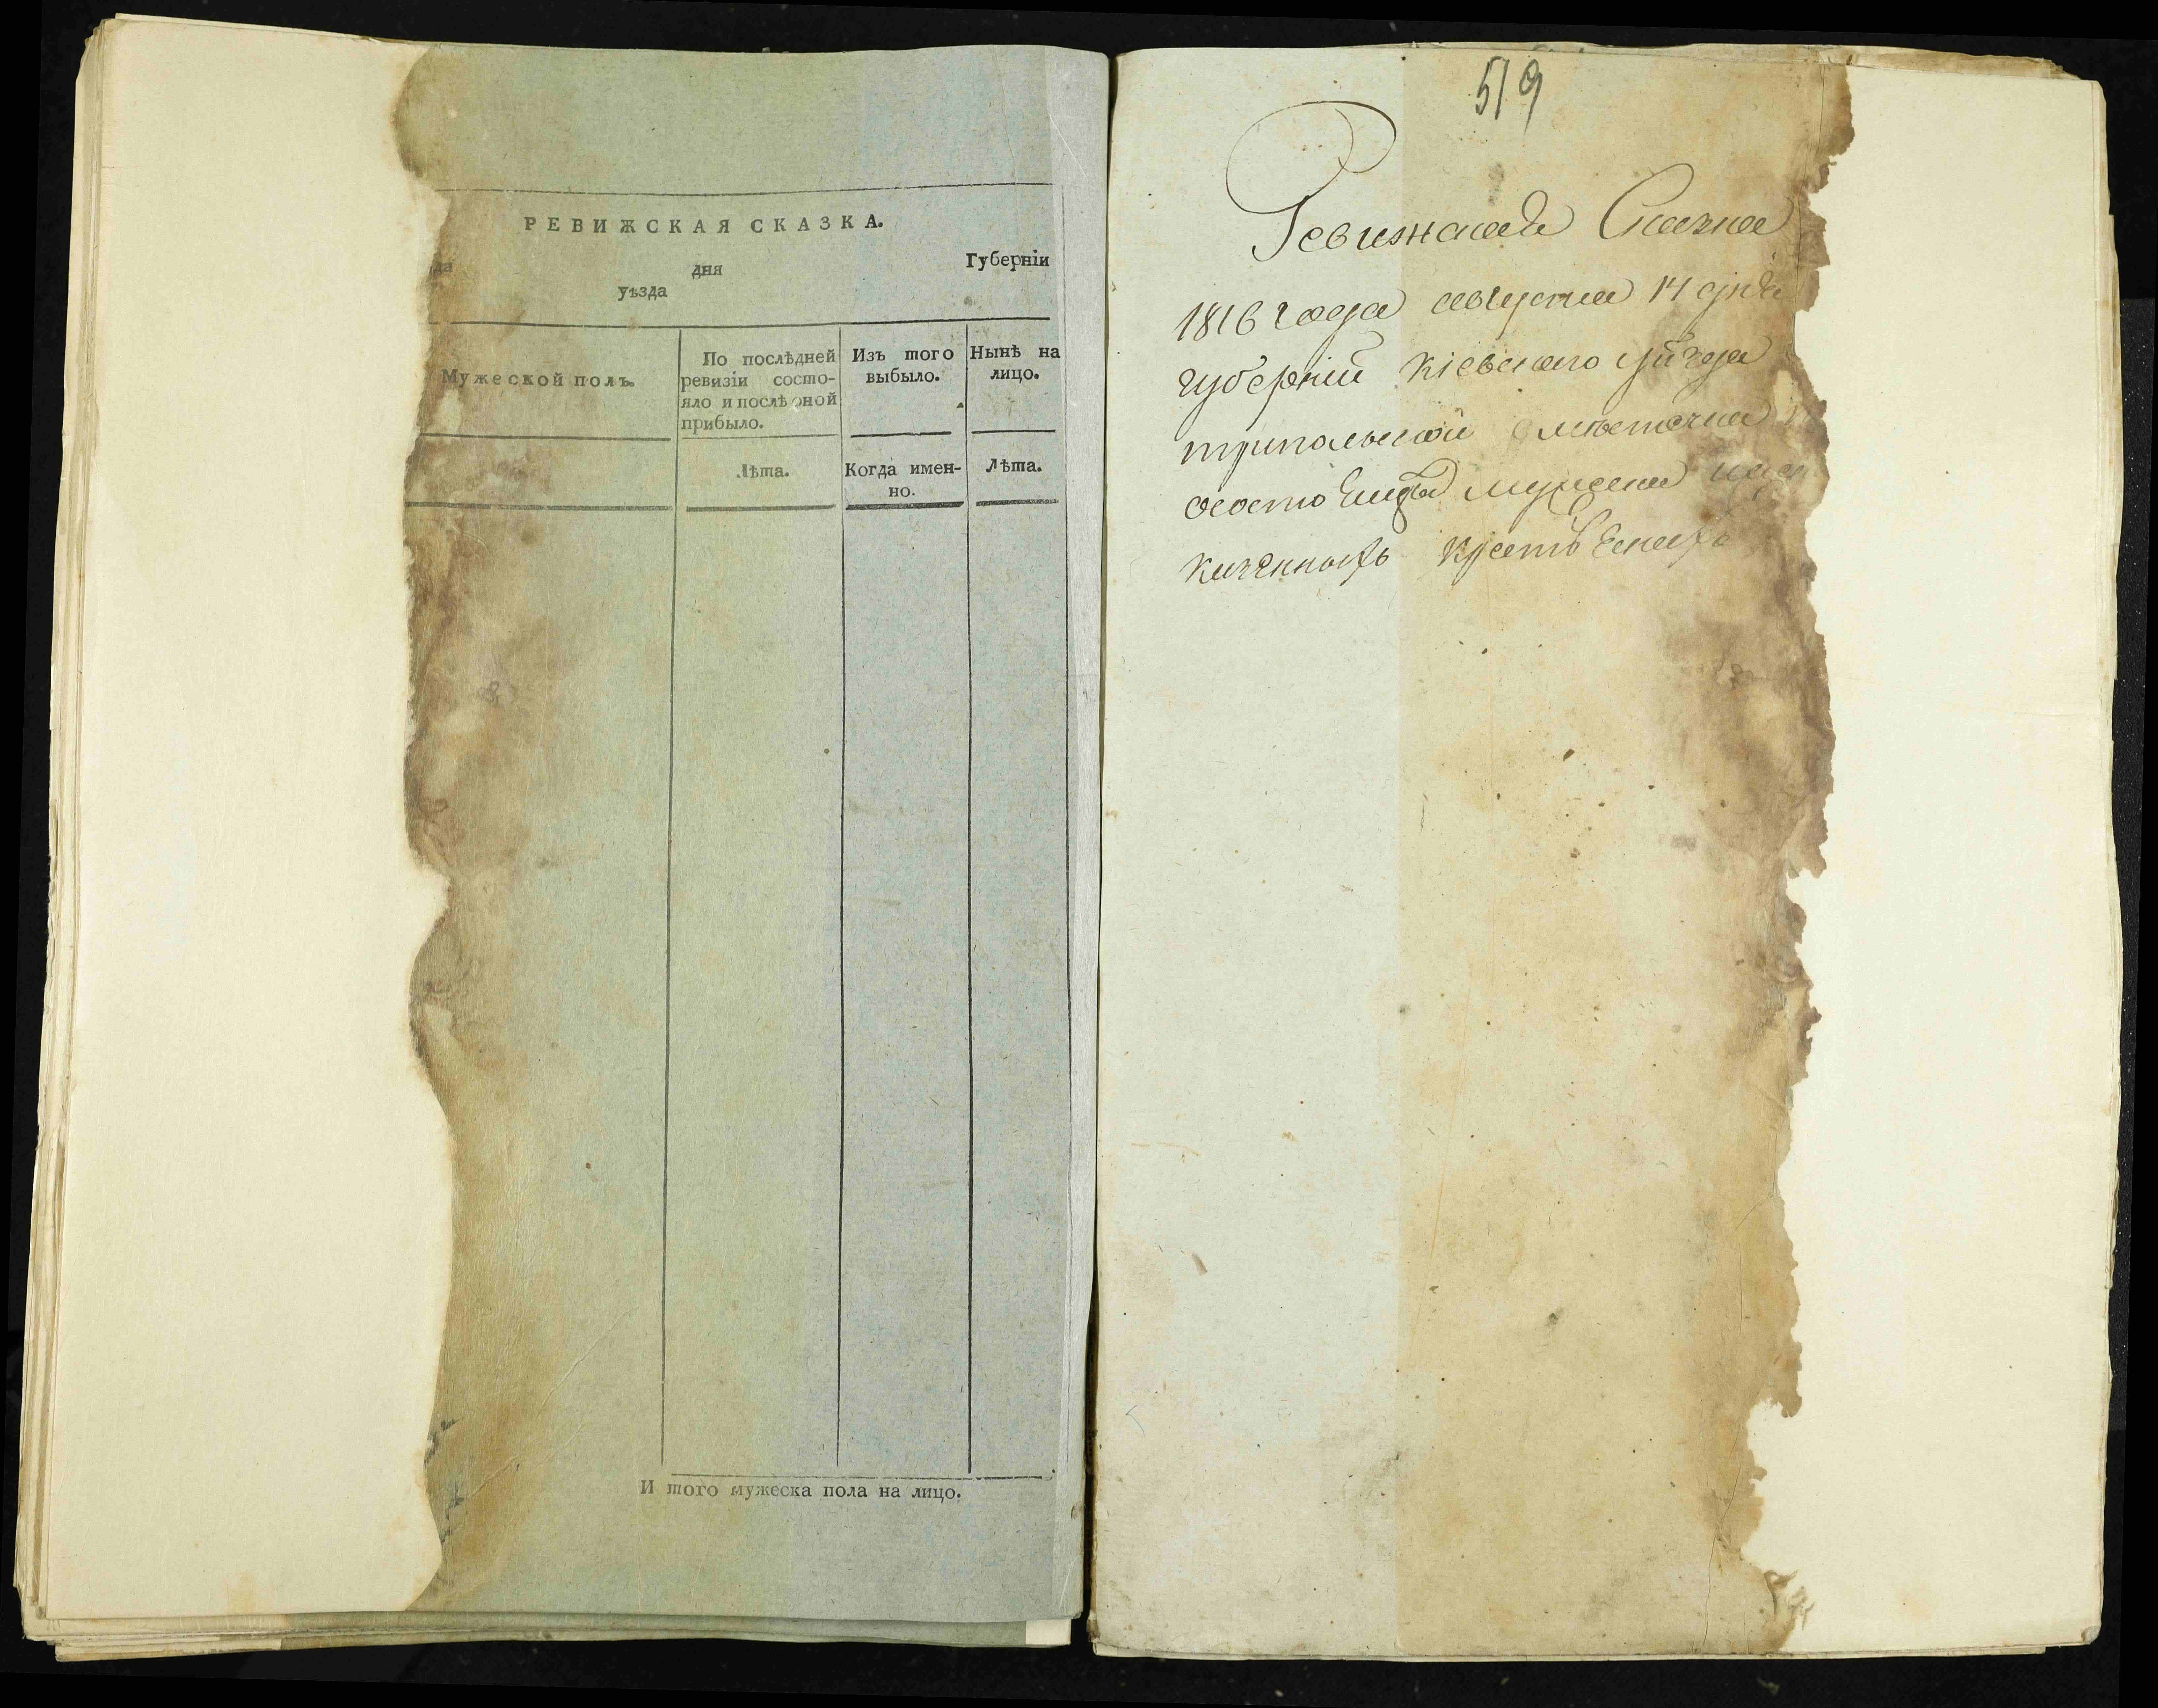 РЕВИЖСКАЯ СКАЗКА.
да дня Губерніи
уѣзда
Мужеской полъ.
По послѣдней
ревизіи состо-
яло и послѣ оной
прибыло.
Изъ того
выбыло.
Нынѣ на
лицо.
Лѣта.
Когда имен-
но.
Лѣта.
И того мужеска пола на лицо.
519
Ревижская Сказка
1816 года августа 14 дня
губерніи Кіевскаго уѣзда
трипольской
о состо мужска
казенныхъ